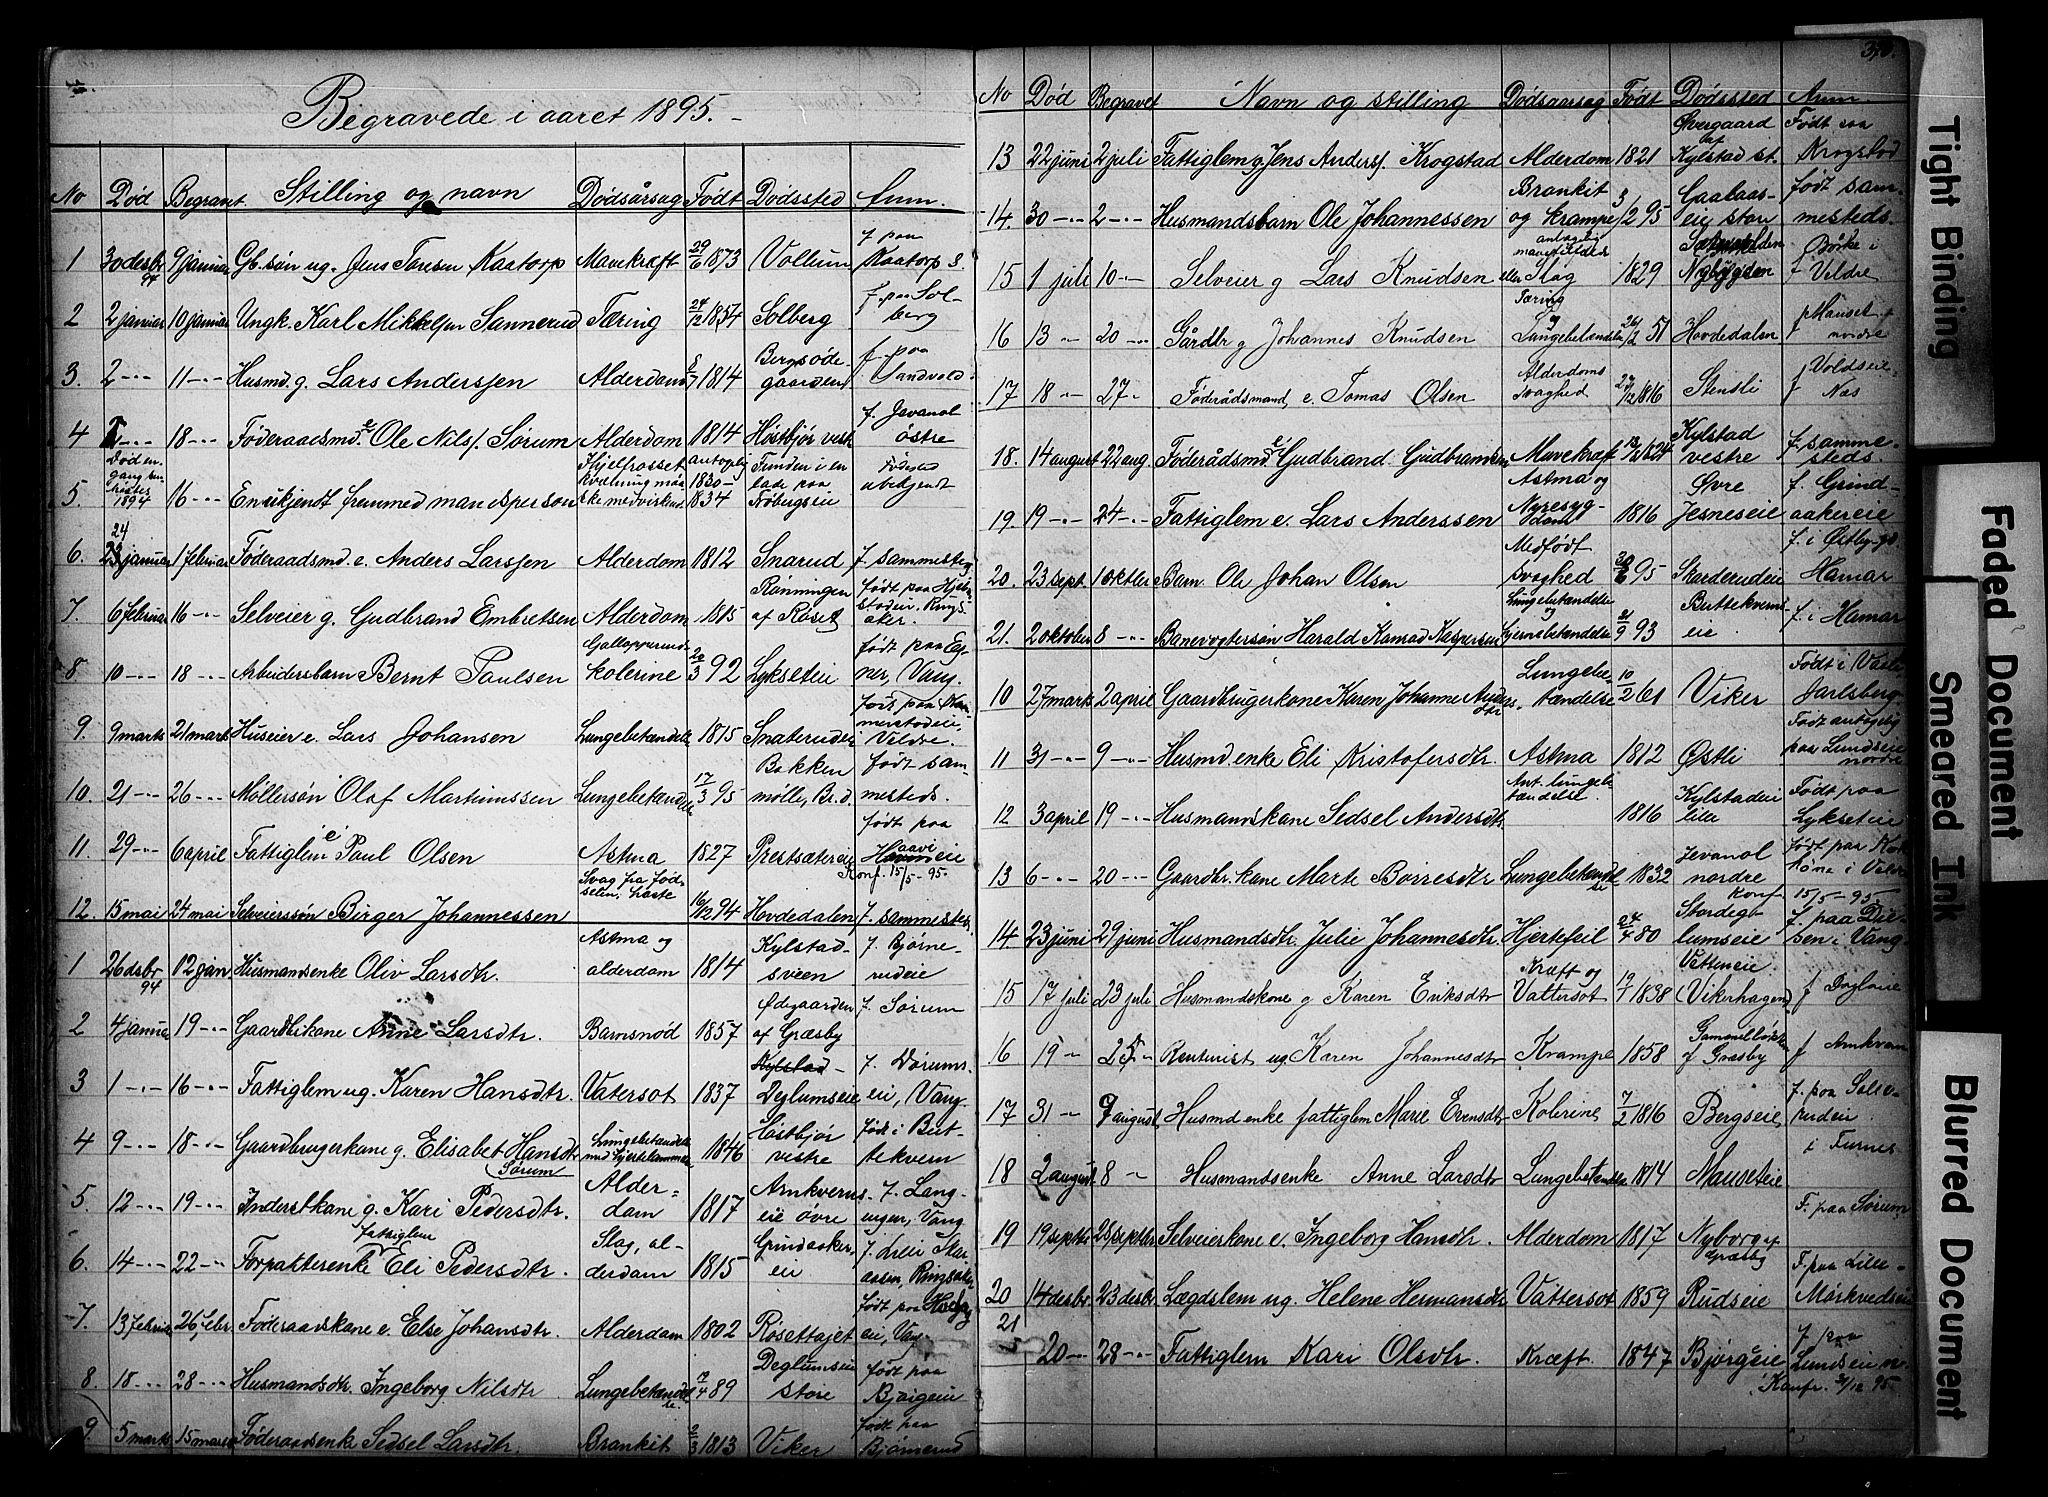 Begravede i aaret 1895. -
No Död Begravet Stilling og navn Dødsårsag Født Dødssted Anm.
1 30 desbr 94 9 januar Gb. søn ug. Jens Toresen Kaatorp Mavekræft 29/6 1873 Vollum f. paa Kaatorp s.
2 2 januar 10 januar Ungk. Karl Mikkelsen Sannerud Tæring 24/12 1857 Solberg f. paa Solberg
3. 2 -"- 11 -"- Husmd. g. Lars Anderssen Alderdom 1814 Bergsødegaarden f. paa Sandvold
4 -"- 18 -"- Føderaadsmd. e Ole Nils s. Sørum Alderdom 1814 Høstbjør vest f. Jevanol østre
5. Död en gang høsten 1894 16 -"- En ukjendt fremmed mandsperson Ihjelfrosset kvælning maaske medvirkende antagelig 1830-1834 Funden i en lade paa Fobergseie Fødested ubekjendt
6. 24 januar 1 februar Føderaadsmd. e. Anders Larssen Alderdom 1812 Snarud f. sammesteds
7. 6 februar 16 -"- Selveier g. Gudbrand Embretsen Alderdom 1815 Rønningen af Røset født paa Hjelstadeie, Ringsaker.
8 10 -"- 18 -"- Arbeidersbarn Bernt Paulsen Galloperende kolerine 92 Lykseteie født paa Eg ner, Vang.
9. 9 marts 21 marts Huseier e. Lars Johansen Lungebetændelse 1815 Snaterudeie født paa Veldre.
10. 21 -"- 26 -"- Møllersøn Olaf Martinussen Lungebetændelse 17/3 95 Bakken mølle, Br.d. født sammesteds.
11. 29 -"- 6 april Fattiglem e Paul Olsen Astma 1827 Prestsætereie født paa
Konf. 15/5-95.
12. 15 mai 24 mai Selveierssøn Birger Johannessen Svag fra fødselen, hoste 16/12 94 Hovdedalen f. sammesteds
1 26 dsbr 94 02 jan Husmandsenke Oliv Larsdtr. Astma og alderdom 1814 Kylstadsveen f. Bjørnerudeie
2 4 januar 19 -"- Gaardbr.kone Anne Larsdtr. Barnsnød 1857 Ødegaarden af Græsby f. Sørum
3 1 -"- 16 -"- Fattiglem ug. Karen Hansdtr. Vatersot 1837 Kylstad - Deglumseie f. Dørumseie, Vang.
4 9 -"- 18 -"- Gaardbrugerkone g. Elisabet Hansdtr Sørum Lungebetændelse med hjertelammelse 1846 Høstbjør vestre født i Buttekvern
5. 12 -"- 19 -"- Inderstkone g. Kari Pedersdtr. Alderdom 1817 Arnkverneie øvre f. Langengen, Vang
6. 14 -"- 22 -"- Forpakterenke fattiglem Eli Pedersdtr. Slag, alderdam 1815 Grindakereie f. Ringsaker
7. 13 februar 26 febr. Føderaadskone e. Else Johansdtr. Alderdom 1802 Røsettajet født paa eie, Vang
8. 18 -"- 28 -"- Husmandsdtr. Ingeborg Nilsdtr Lungebetændelse. 89 Deglumseie store født paa Bjørgeeie
9. 5 marts 15 marts Føderaadsenke Sedsel Larsdtr. Brankit 1813 Viker født paa Bjørnerud
No Död Begravet Navn og stilling Dødsaarsag Født Dødssted Anm.
13 22 juni 2 juli Fattiglem g Jens Anders s. Krogstad Alderdom 1821 Øvergaard af Kylstad st. Født paa Krogstad
14. 30 -"- 2 -"- Husmandsbarn Ole Johannessen Brankit og krampe 3/2 95 Gaalaaseie stor født sammesteds.
15 1 juli 10 -"- Selveier g Lars Knudsen eller Slag 1829 Nybygden f Børke i Veldre
16 13 " 20 -"- Gårdbr g Johannes Knudsen Tæring og Lungebetændelse 26/2 51 Hovdedalen f Hauset nordre
17 18 " 27 " Føderådsmand, e. Tomas Olsen Alderdoms svaghed 27/12 1816 Stensli f Voldseie Næs
18. 14 august 22 aug. Føderådsmd. e Gudbrand Gudbrandsen Mavekræft 1824 Kylstad vestre f. sammesteds.
19. 19 -"- 24 -"- Fattiglem e. Lars Anderssen Astma og Nyresygdom 1816 Øvre Jesneseie f. Grindaakereie
20. 23 sept. 1 oktbr Barn Ole Johan Olsen Medfødt svaghed 95 Skarderudeie f. i Østby-gd. Hamar
21. 2 oktober 8 -"- Banevogtersøn Harald Konrad Kaspersen Lungebetændelse og hjernebetændelse 93 Buttekverneie f. i Hamar
10 27 marts 2 april Gaardbrugerkone Karen Johanne Andersdtr. Lungebetændelse 10/2 61 Viker Født i Vaale Jarlsberg
11 31 -"- 9 -"- Husmd.enke Eli Kristofersdtr. Astma 1812 Østli Født antagelig paa Lundseie nordre
12 3 april 19 -"- Husmannskone Sedsel Andersdtr Ant. lungebetændelse. 1816 Kylstadeie lille Født paa Lykseteie
13 6 -"- 20 -"- Gaardbr.kone Marte Børresdtr Lungebetændelse 1832 Jevanol nordre født paa i Veldre
Konf. 15/5-95.
14. 23 juni 29 juni Husmandsdtr. Julie Johannesdtr. Hjertefeil 24/4 80 Stordeglumseie f. paa Diesen i Vang.
15 17 juli 23 juli Husmandskone g Karen Eriksdtr Kræft og Vattersot 19/7 1838 Vetteneie (Vikerhagen) f Dogloeie
16 19 " 25 " Renterist ug. Karen Johannesdtr Krampe 1858 Gammelløkken af Græsby f Arnkvern
17 31 " 9 august Husmd enke fattiglem Marie Evensdtr Kolerine 7/2 1816 Bergseie f. paa i Furnes
18 2 august 8 " Husmandsenke Anne Larsdtr Lungebetændelse 1814 Mauseteie
19 19 septbr 28 septbr Selveierkone e. Ingeborg Hansdtr. Alderdom 1817 Nyborg af Græsby F. paa Sørum
20 14 desbr 23 desbr Lægdslem ug. Helene Hermansdtr Vattersot 1859 Rudseie F. paa Lille-Mörkvedseie
21 20 -"- 28 -"- Fattiglem Kari Olsdtr. Kræft. 1847 Bjørgeeie f. paa Lundseie n.
Konfr. 31/12 95
Tight Binding
Faded Document
Smeared Ink
Blurred Document